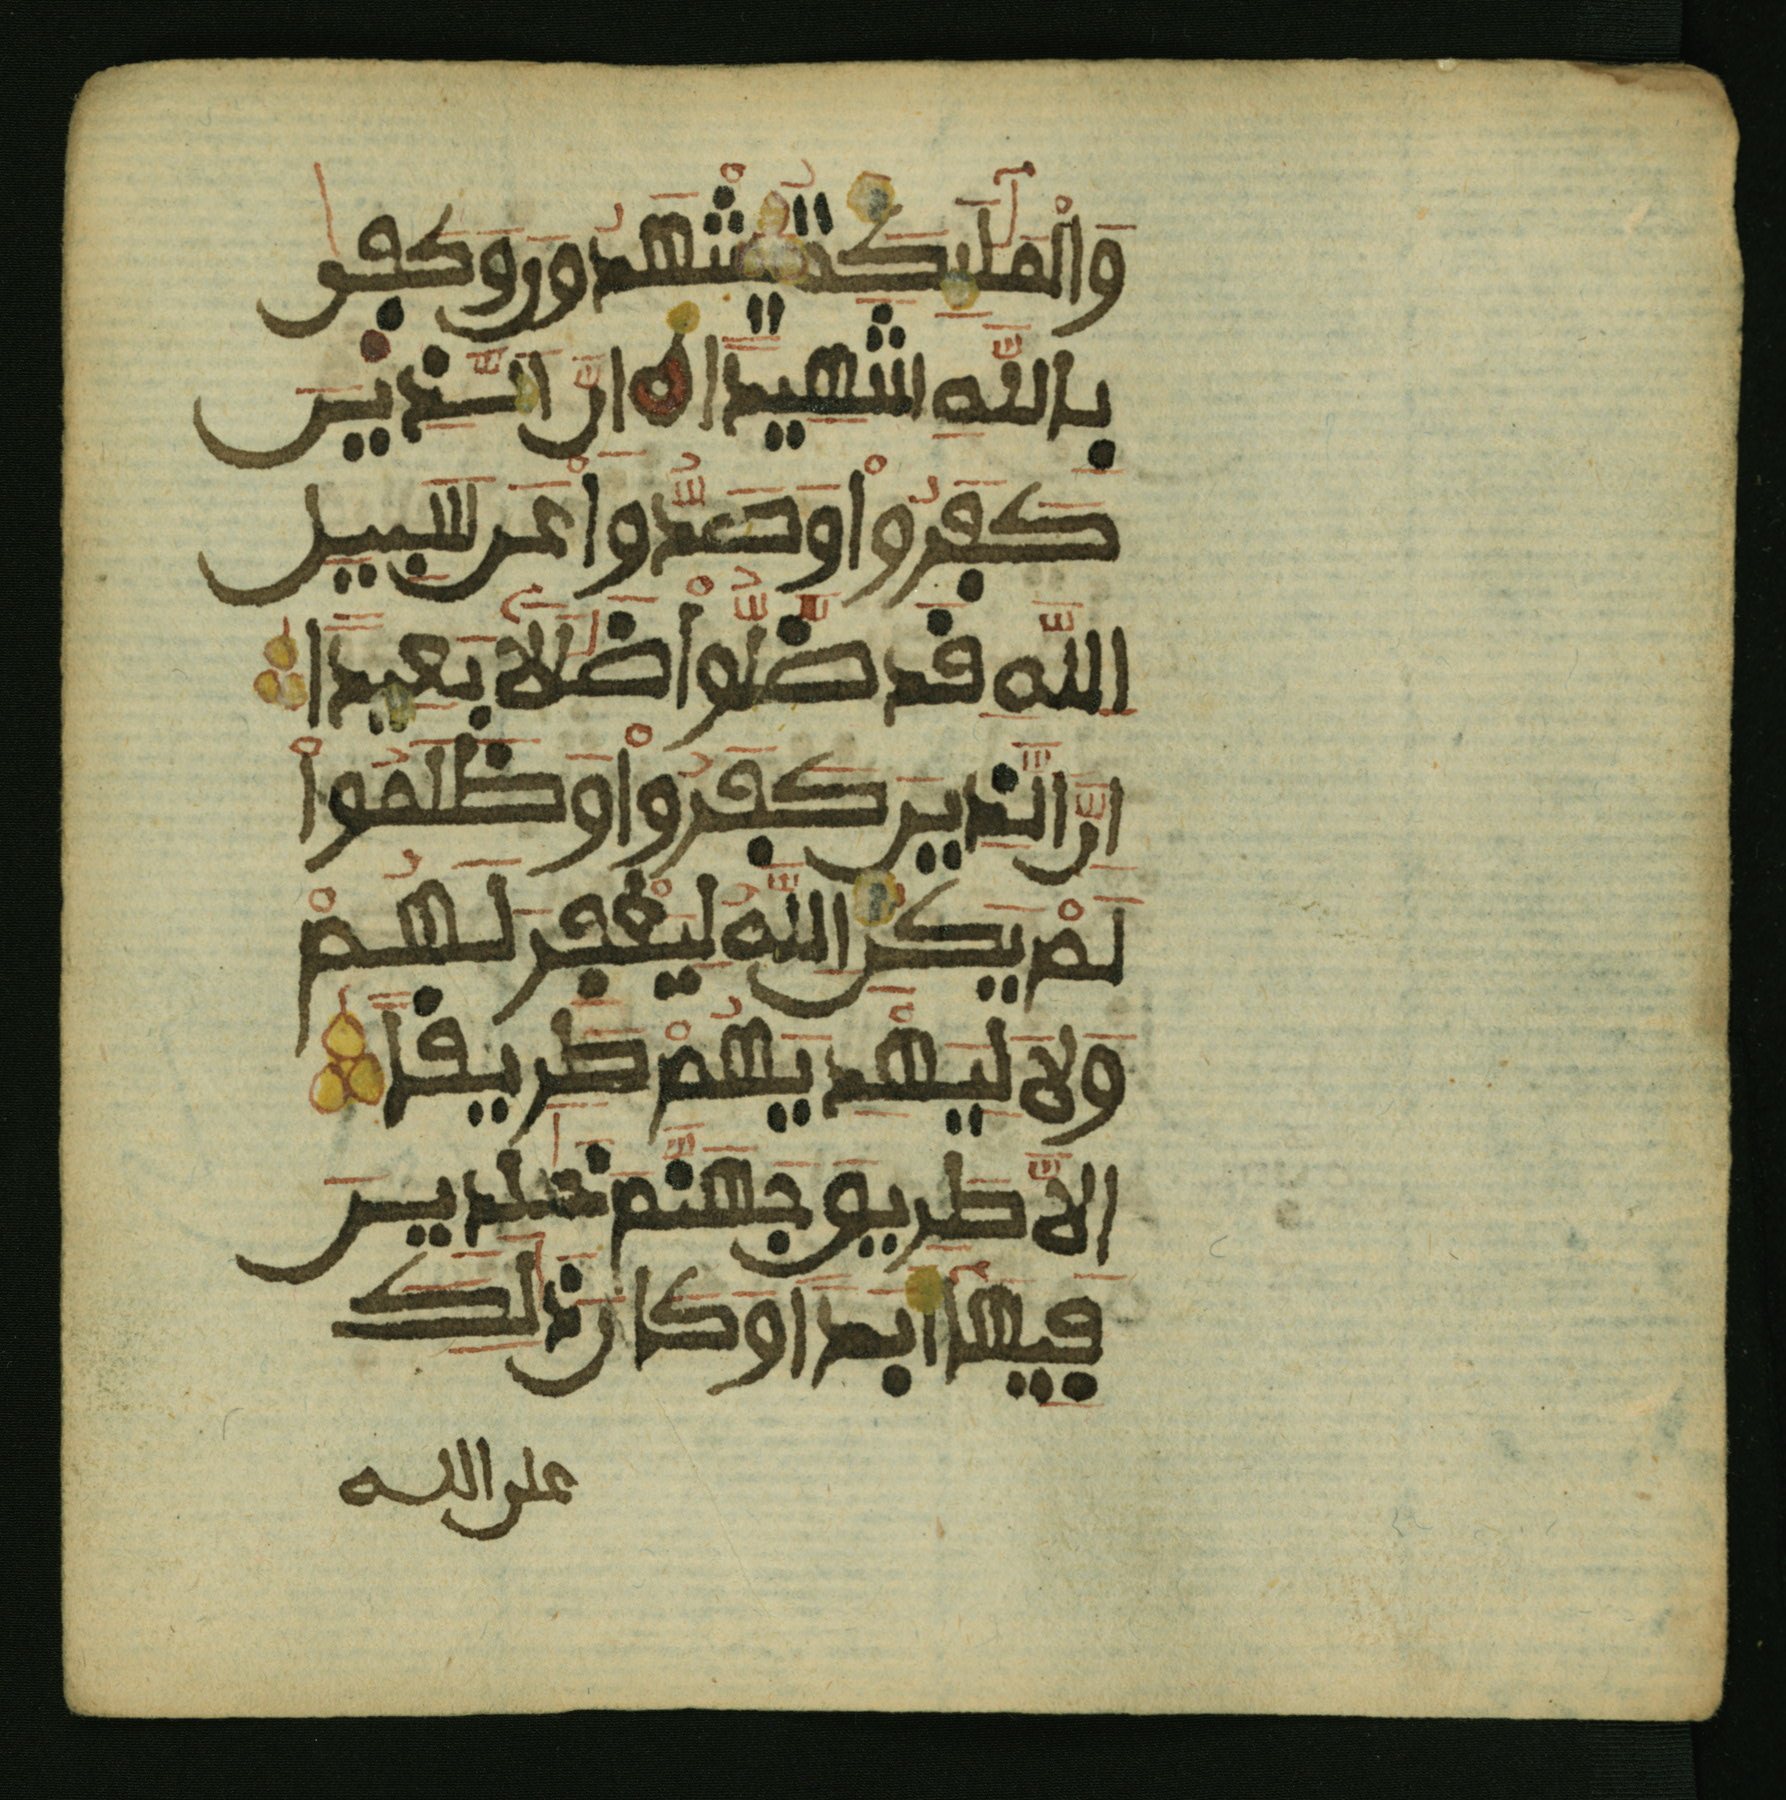 وَالْمَلَٰٓئِكَةُ يَشْهَدُونَ وَكَفَىٰ
بِاللَّهِ شَهِيدًا ه اِنَّ الَّذِينَ
كَفَرُواْ وَصَدُّواْ عَن سَبِيلِ
اللَّهِ قَد ضَّلُّواْ ضَلَٰلَا بَعِيدًا
اِنَّ الَّذِينَ كَفَرُواْ وَظَلَمُواْ
لَمْ يَكُنِ اللَّهُ لِيَغْفِرَ لَهُمْ
وَلَا لِيَهْدِيَهُمْ طَرِيقًا
اِلَّا طَرِيقَ جَهَنَّمَ خَٰلِدِينَ
فِيهَآ أَبَدًا وَكَانَ ذَٰلِكَ
على الله